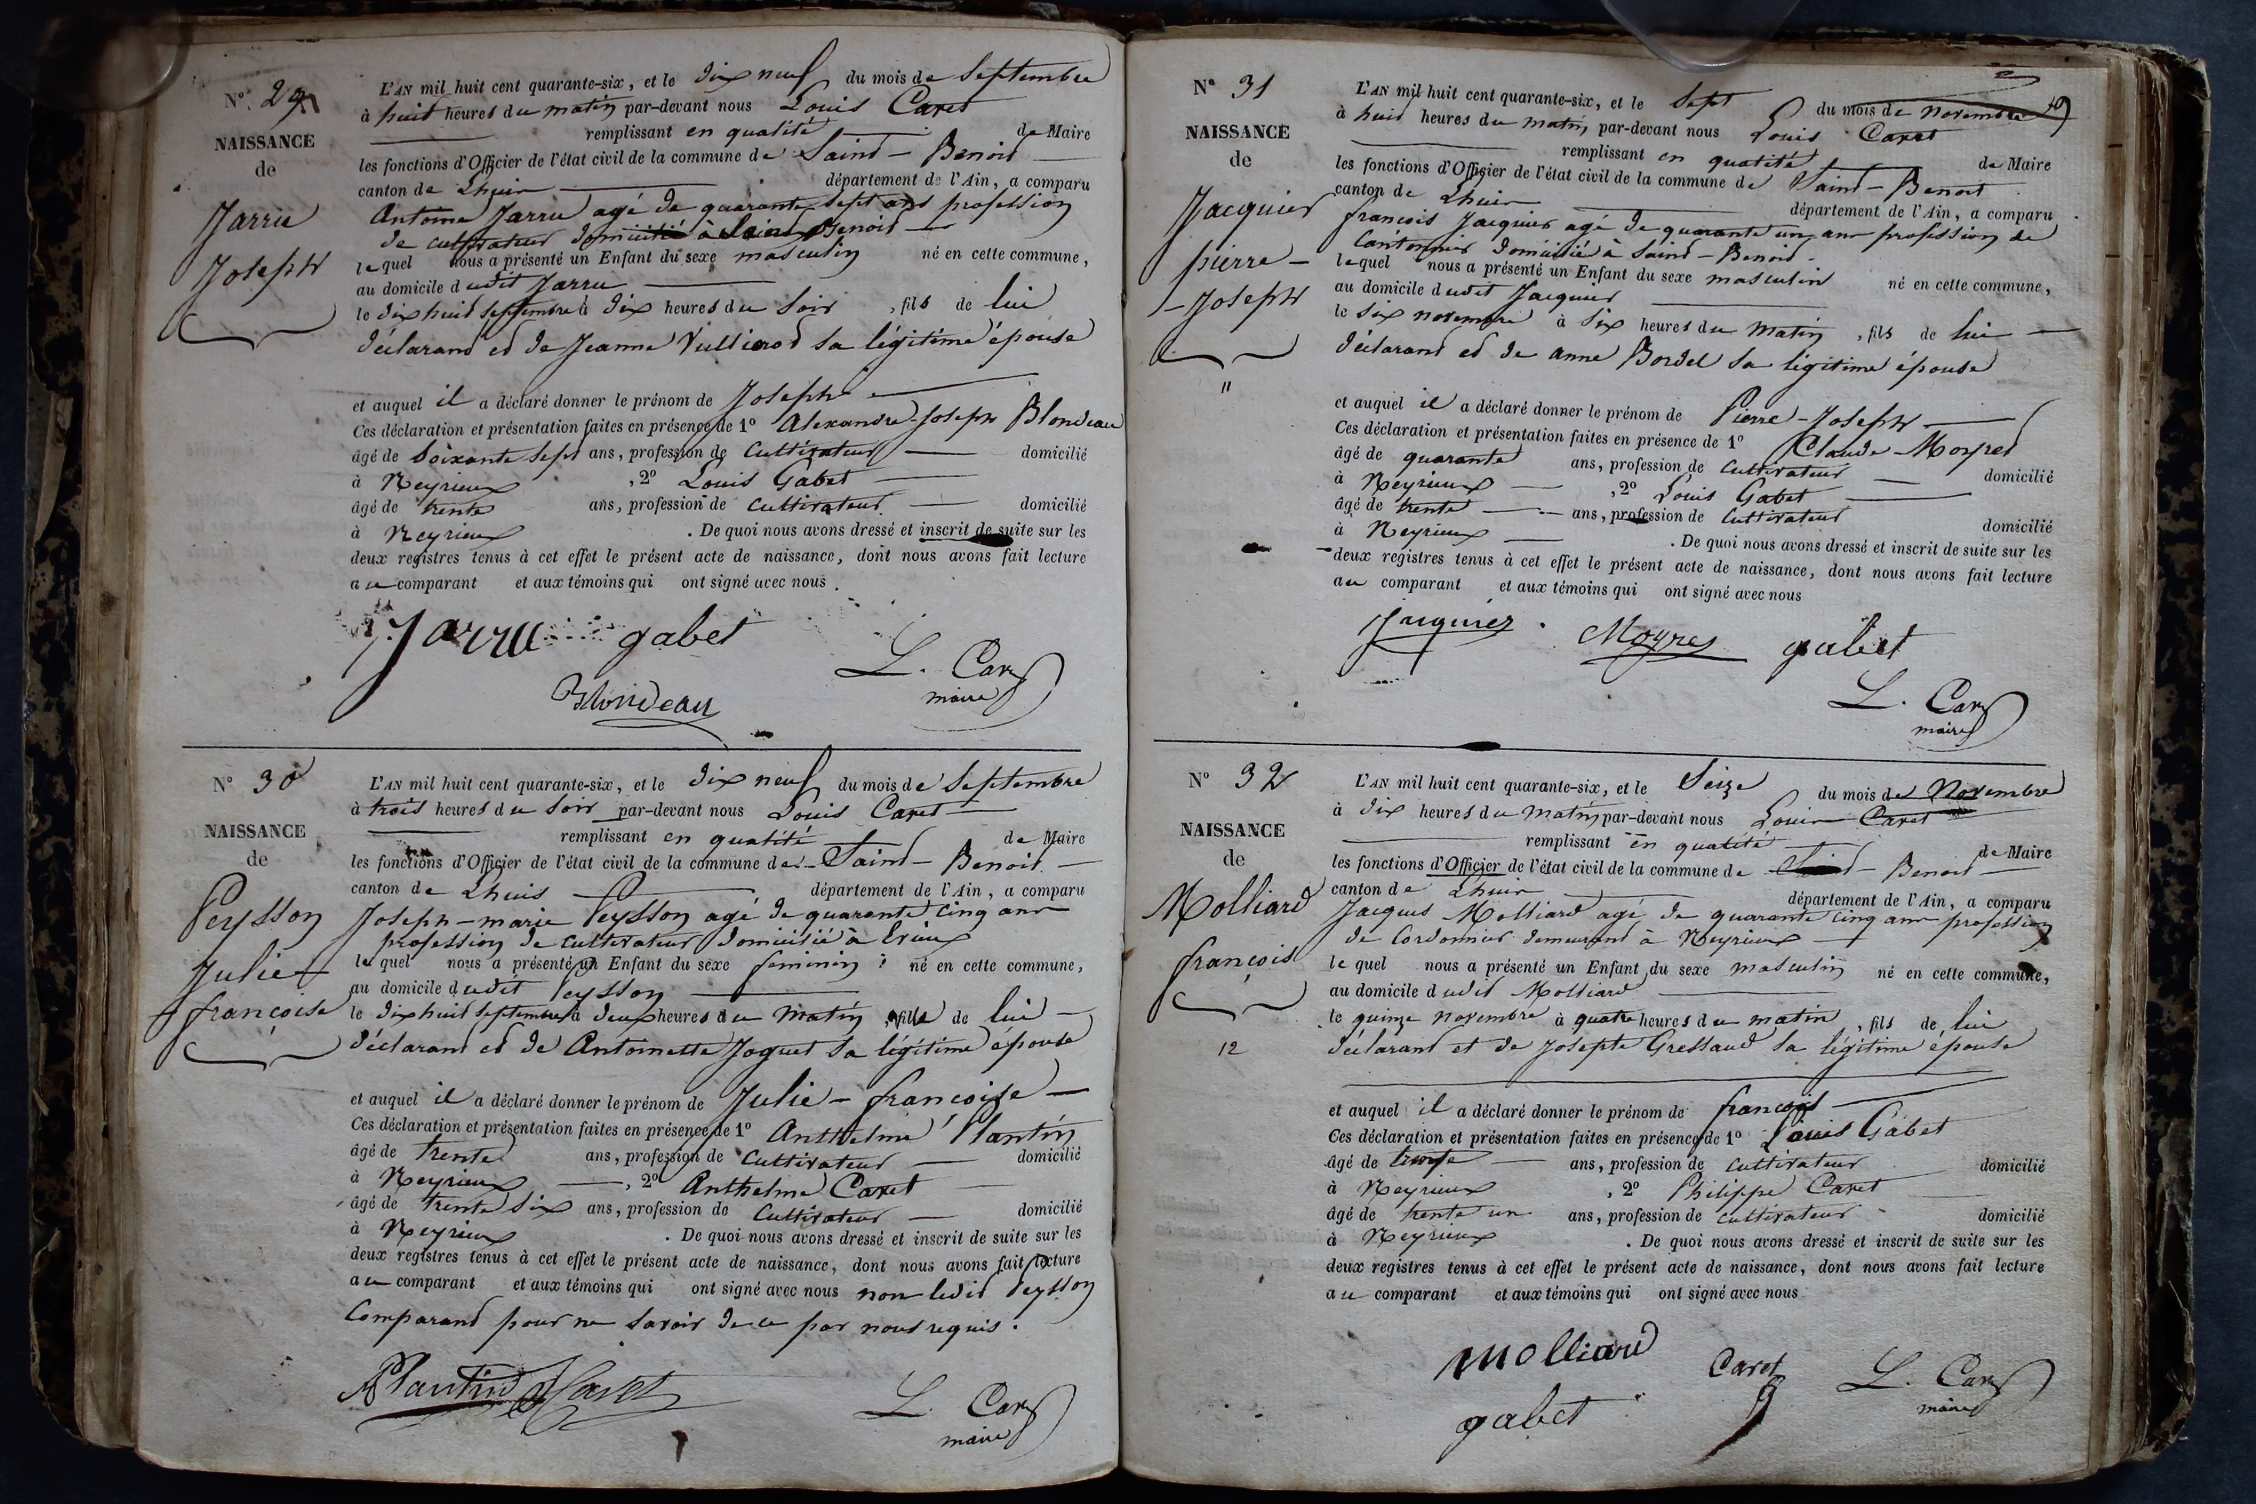 N° 29
NAISSANCE
de
Jarrie
Joseph
L'AN mil huit cent quarante-six, et le dix neuf du mois de Septembre
à huit heures du matin par-devant nous Louis Caret
remplissant en qualité de Maire
les fonctions d'Officier de l'état civil de la commune de Saint-Benoit
canton de Lhuis département de l'Ain, a comparu
Antoine Jarrie agé de quarante sept ans profession
de cultivateur domicilié à Saint Benoit
lequel nous a présenté un Enfant du sexe masculin né en cette commune,
au domicile dudit Jarru
le dix huit Septembre à dix heures du Soir, fils de lui
déclarant et de Jeanne Vullierod sa légitime épouse
et auquel il a déclaré donner le prénom de Joseph
Ces déclaration et présentation faites en présence de 1° Alexandre-Joseph Blondeau
âgé de Soixante Sept ans, profession de Cultivateur domicilié
à Neyrieux, 2° Louis Gabet
âgé de trente ans, profession de cultivateur domicilié
à Neyrieux. De quoi nous avons dressé et inscrit de suite sur les
deux registres tenus à cet effet le présent acte de naissance, dont nous avons fait lecture
au comparant et aux témoins qui ont signé avec nous.
Jarru gabet
L. Caret
maire
Blondeau
N° 30
NAISSANCE
de
Peysson
Julie-
françoise
L'AN mil huit cent quarante-six, et le dix neuf du mois de Septembre
à trois heures du Soir par-devant nous Louis Caret
remplissant en qualité de Maire
les fonctions d'Officier de l'état civil de la commune de Saint-Benoit
canton de Lhuis département de l'Ain, a comparu
Joseph-marie Peysson agé de quarante cinq ans
profession de cultivateur domicilié à Evieu
lequel nous a présenté un Enfant du sexe feminin né en cette commune,
au domicile dudit Peysson
le dix huit Septembre à deux heures du matin, fille de lui
déclarant et de Antoinette Joguet sa légitime épouse
et auquel il a déclaré donner le prénom de Julie-françoise
Ces déclaration et présentation faites en présence de 1° Anthelme Plantin
âgé de trente ans, profession de cultivateur domicilié
à Neyrieux, 2° Anthelme Caret
âgé de trente six ans, profession de Cultivateur domicilié
à Neyrieux. De quoi nous avons dressé et inscrit de suite sur les
deux registres tenus à cet effet le présent acte de naissance, dont nous avons fait lecture
au comparant et aux témoins qui ont signé avec nous non ledit Peysson
Comparant pour ne savoir de ce par nous requis.
Plantin Caret
L. Caret
maire
N° 31
NAISSANCE
de
Jacquier
pierre-
-Joseph
11
L'AN mil huit cent quarante-six, et le Sept du mois de novembre
à huit heures du matin par-devant nous Louis Caret
remplissant en qualité de Maire
les fonctions d'Officier de l'état civil de la commune de Saint-Benoit
canton de Lhuis département de l'Ain, a comparu
françois Jacquier agé de quarante un ans profession de
Cantonnier domicilié à Saint-Benoit
lequel nous a présenté un Enfant du sexe masculin né en cette commune,
au domicile dudit Jacquier
le six novembre à six heures du matin, fils de lui
déclarant et de anne Bordel sa légitime épouse
et auquel il a déclaré donner le prénom de Pierre-Joseph
Ces déclaration et présentation faites en présence de 1° Claude Moyret
âgé de quarante ans, profession de cultivateur domicilié
à Neyrieux, 2° Louis Gabet
âgé de trente ans, profession de Cultivateur domicilié
à Neyrieux. De quoi nous avons dressé et inscrit de suite sur les
deux registres tenus à cet effet le présent acte de naissance, dont nous avons fait lecture
au comparant et aux témoins qui ont signé avec nous
Jaquier Moyret gabet
L. Caret
maire
N° 32
NAISSANCE
de
Molliard
françois
12
L'AN mil huit cent quarante-six, et le Seize du mois de Novembre
à dix heures du matin par-devant nous Louis Caret
remplissant en qualité de Maire
les fonctions d'Officier de l'état civil de la commune de Saint-Benoit
canton de Lhuis département de l'Ain, a comparu
Jacques Molliard agé de quarante cinq ans profession
de Cordonnier demeurant à Neyrieux
lequel nous a présenté un Enfant du sexe masculin né en cette commune,
au domicile dudit Molliard
le quinze novembre à quatre heures du matin, fils de lui
déclarant et de Josephte Gressaud sa légitime épouse
et auquel il a déclaré donner le prénom de françois
Ces déclaration et présentation faites en présence de 1° Louis Gabet
âgé de trente ans, profession de cultivateur domicilié
à Neyrieux, 2° Philippe Caret
âgé de trente un ans, profession de cultivateur domicilié
à Neyrieux. De quoi nous avons dressé et inscrit de suite sur les
deux registres tenus à cet effet le présent acte de naissance, dont nous avons fait lecture
au comparant et aux témoins qui ont signé avec nous
molliard Caret L. Caret
maire
gabet